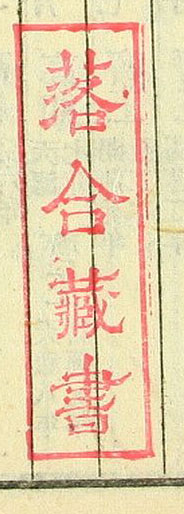 落合藏書